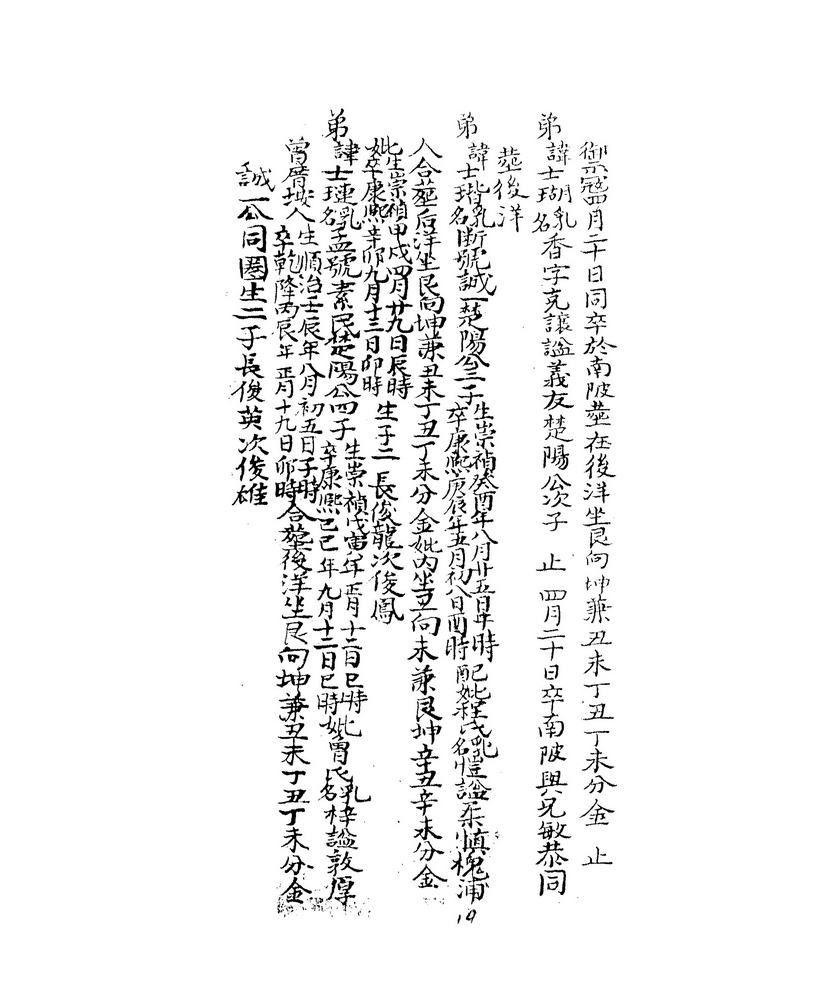 御寇四月二十日同卒於南陂塟在後洋坐艮向坤兼丑未丁丑丁未分金 止
弟 諱士瑚乳名香字克讓諡義友楚陽公次子 止 四月二十日卒南陂與兄敏恭同
塟後洋
弟 諱士瑎乳名斷號誠一楚陽公三子 生崇禎癸酉年八月廿五日午時 卒康熙庚辰年五月初八日酉時 配妣程氏乳名愷諡柔慎槐浦
人合塟后洋坐艮向坤兼丑未丁丑丁未分金妣內坐丑向未兼艮坤辛丑辛未分金
妣生崇禎甲戌四月廿九日辰時 妣卒康熙辛卯九月十三日卯時 生子二 長俊龍次俊鳳
弟 諱士璉乳名孟號素民楚陽公四子 生崇禎戊寅年正月十二日巳時 卒康熙己巳年九月十二日巳時 妣曾氏乳名梓諡敦厚
曾厝垵人 生順治壬辰年八月初五日子時 卒乾隆丙辰年正月十九日卯時 合塟後洋坐艮向坤兼丑未丁丑丁未分金
誠一公同圈生二子長俊英次俊雄
19